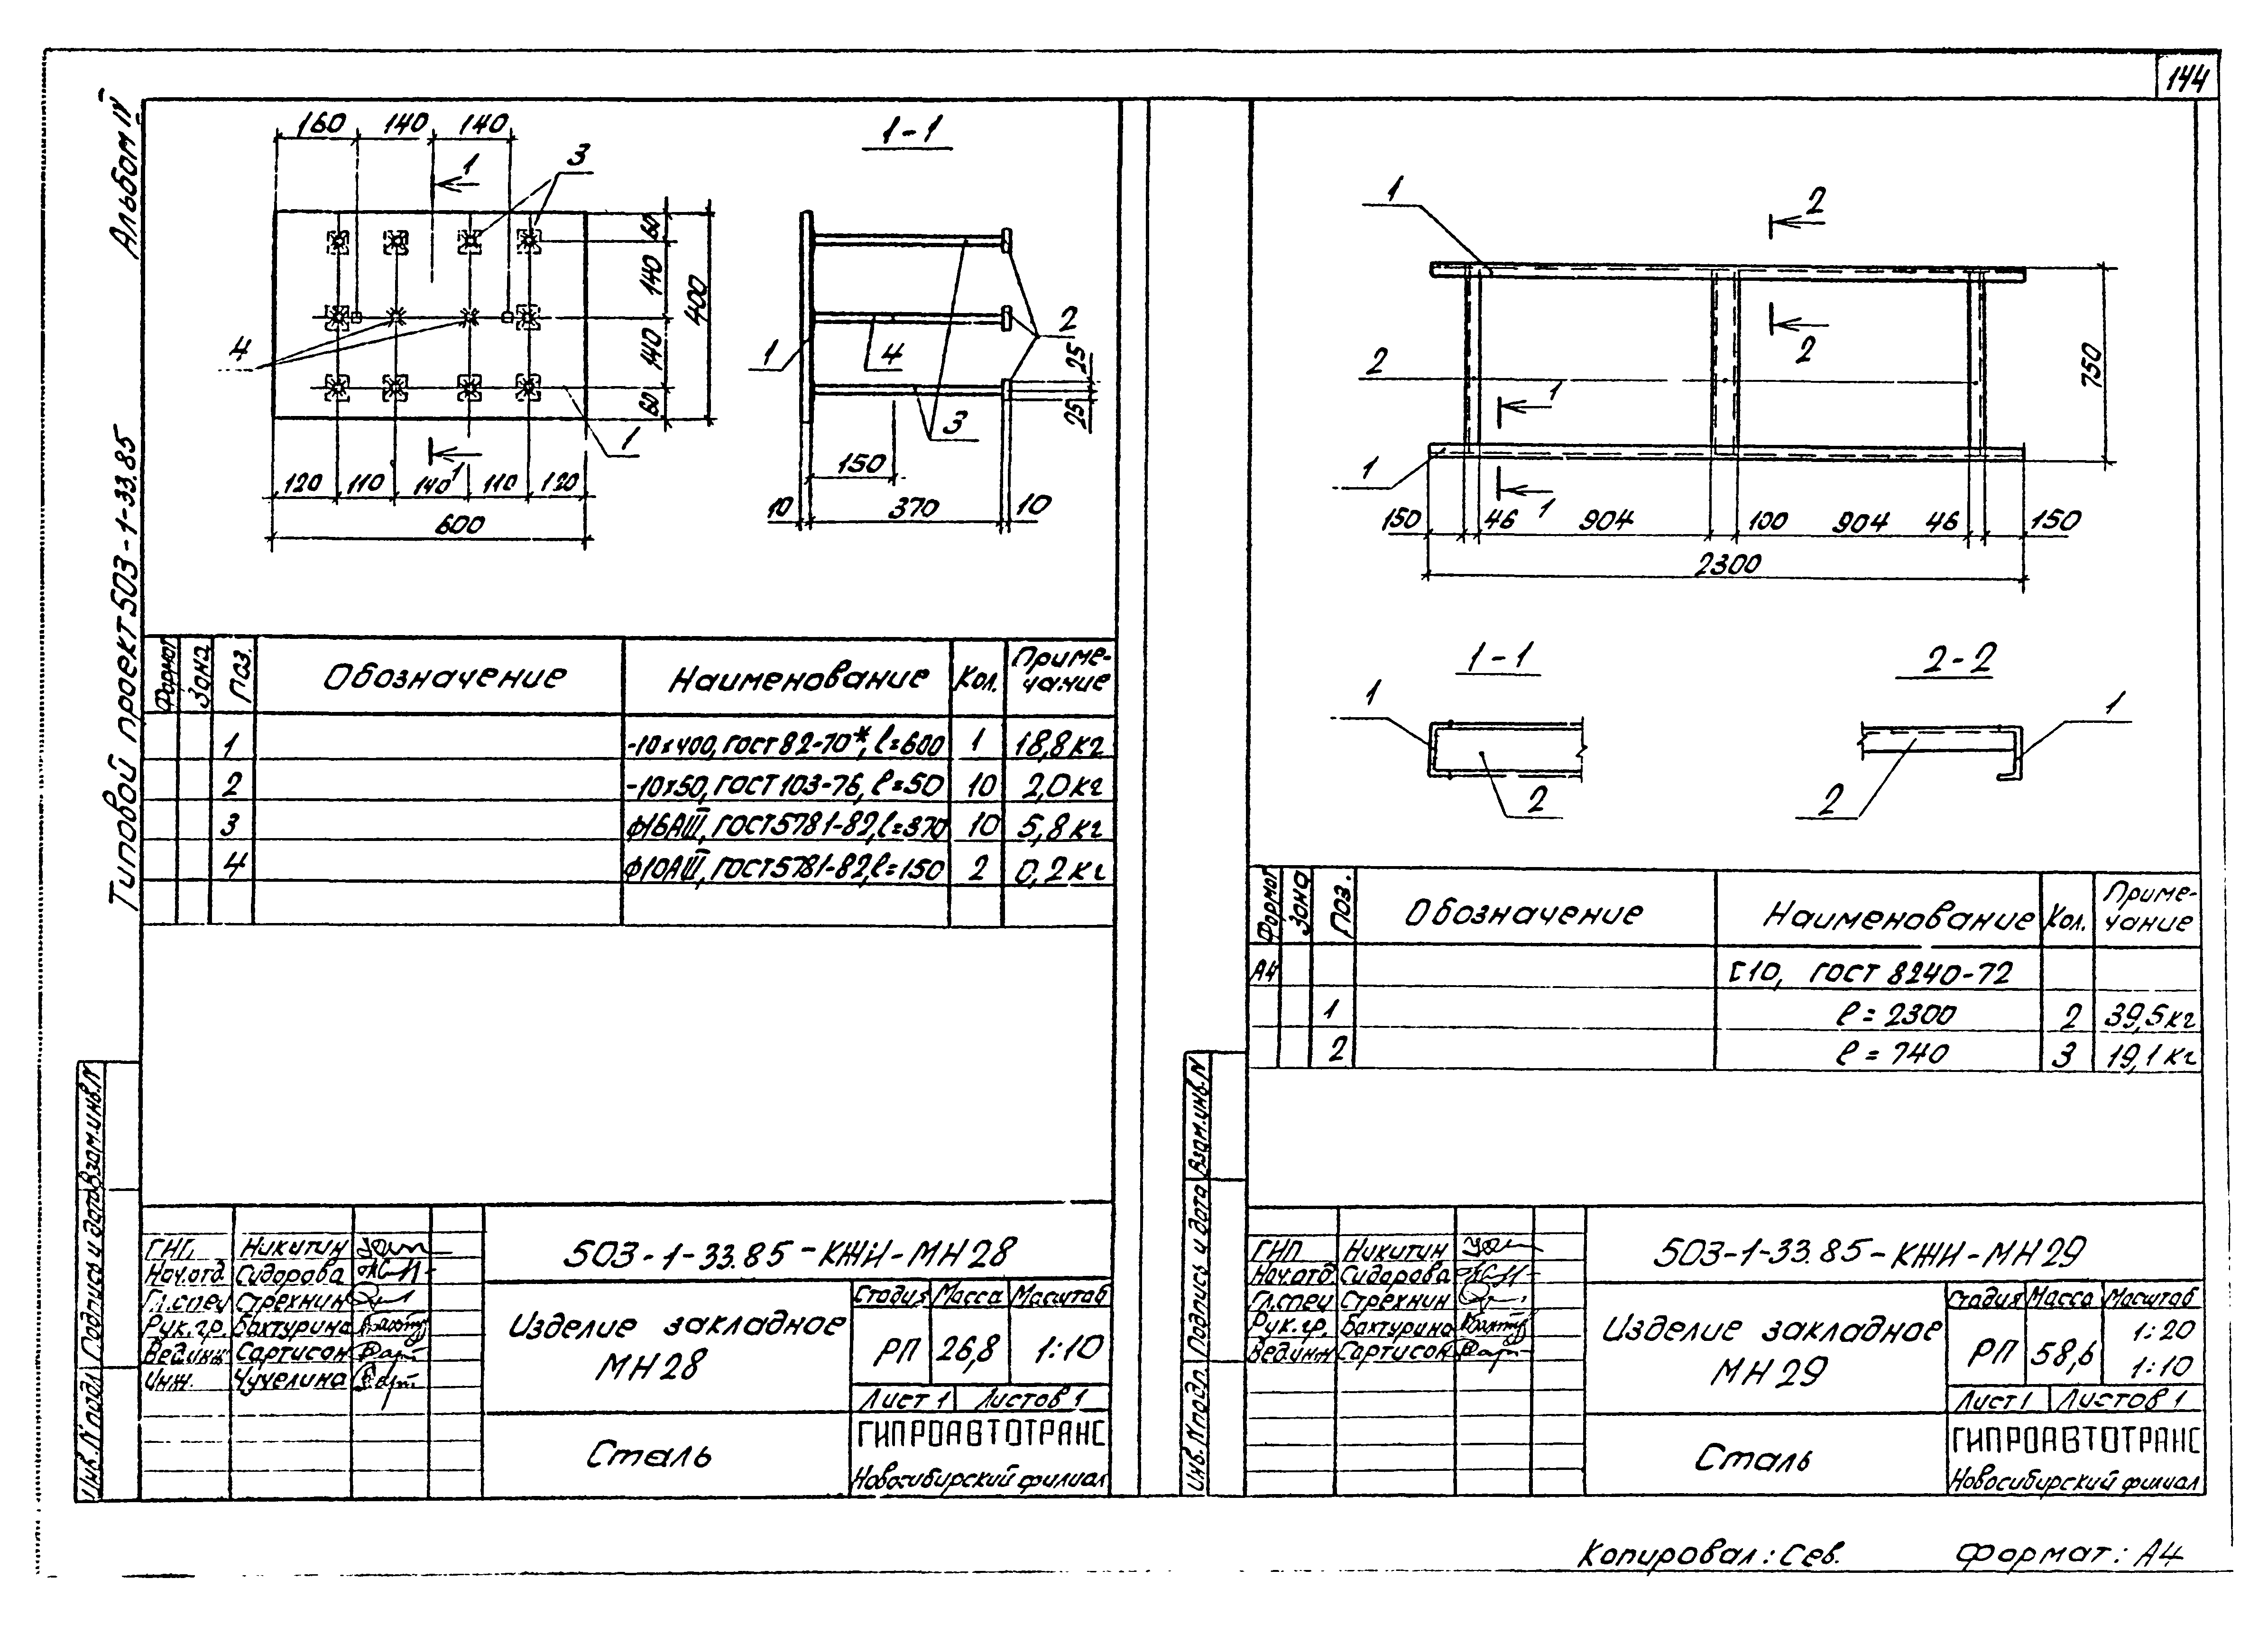 144
Альбом IV
Типовой проект 503-1-33.85
160 140 140
1
3
60
140
400
140
60
4
1
1
120 110 140 110 120
600
1-1
1
4
2
3
25
25
150
10 370 10
Формат Зона Поз. Обозначение Наименование Кол. Приме-чание
1 -10х400, ГОСТ 82-70*, ℓ=600 1 18,8 кг
2 -10х50, ГОСТ 103-76, ℓ=50 10 2,0 кг
3 ф16АIII, ГОСТ 5781-82, ℓ=370 10 5,8 кг
4 ф10АIII, ГОСТ 5781-82, ℓ=150 2 0,2 кг
Инв. N подл. Подпись и дата Взам. инв. N
ГИП Никитин
Нач.отд. Сидорова
Гл.спец Стрехнин
Рук.гр. Бахтурина
Вед.инж Сартисон
Инж. Чучелина
503-1-33.85-КЖИ-МН28
Изделие закладное
МН28
Стадия Масса Масштаб
РП 26,8 1:10
Лист 1 Листов 1
Сталь
ГИПРОАВТОТРАНС
Новосибирский филиал
1
2
2
2
1
1
1
750
150 46 904 100 904 46 150
2300
1-1
1
2
2-2
1
2
Формат Зона Поз. Обозначение Наименование Кол. Приме-чание
А4 [10, ГОСТ 8240-72
1 ℓ=2300 2 39,5 кг
2 ℓ=740 3 19,1 кг
Инв. N подл. Подпись и дата Взам. инв. N
ГИП Никитин
Нач.отд. Сидорова
Гл.спец Стрехнин
Рук.гр. Бахтурина
Вед.инж Сартисон
503-1-33.85-КЖИ-МН29
Изделие закладное
МН29
Стадия Масса Масштаб
РП 58,6 1:20
1:10
Лист 1 Листов 1
Сталь
ГИПРОАВТОТРАНС
Новосибирский филиал
Копировал: Сев. Формат: А4